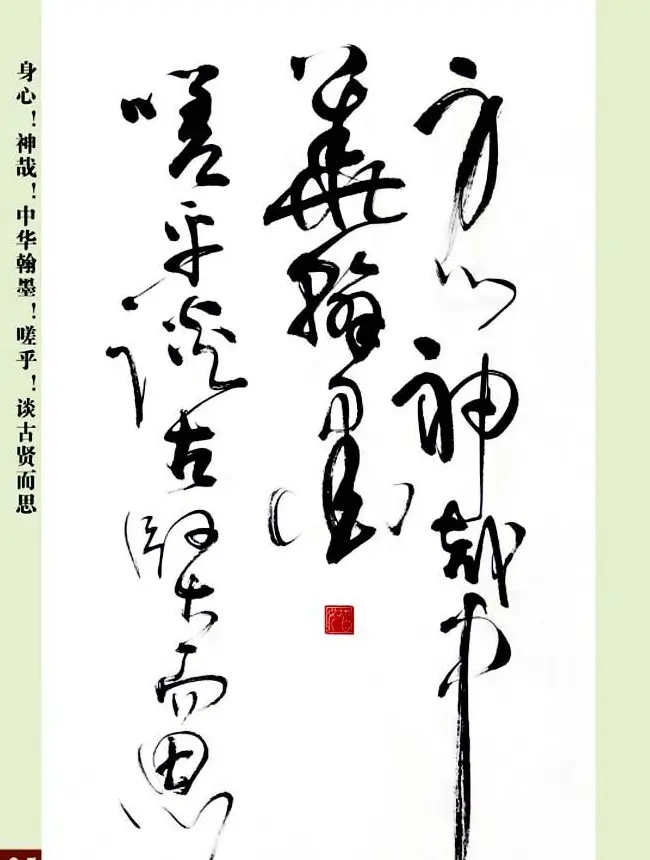 身心神哉中
華翰墨
嗟乎談古賢而思
身心！神哉！中华翰墨！嗟乎！谈古贤而思